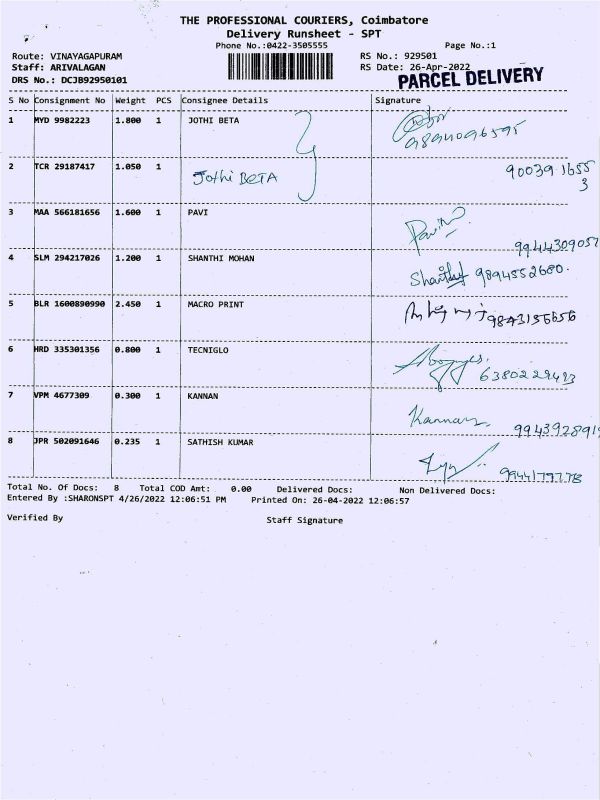 THE PROFESSIONAL COURIERS, Coimbatore
Delivery Runsheet - SPT
Phone No.:0422-3505555 Page No.:1
Route: VINAYAGAPURAM RS No.: 929501
Staff: ARIVALAGAN RS Date: 26-Apr-2022
DRS No.: DCJB92950101 PARCEL DELIVERY
S No Consignment No Weight PCS Consignee Details Signature
1 MYD 9982223 1.800 1 JOTHI BETA
9894096595
2 TCR 29187417 1.050 1 Jothi BETA 900391655
3
3 MAA 566181656 1.600 1 PAVI
9944309057
4 SLM 294217026 1.200 1 SHANTHI MOHAN
9894552680.
5 BLR 1600890990 2.450 1 MACRO PRINT
9843156656
6 HRD 335301356 0.800 1 TECNIGLO
6380229493
7 VPM 4677309 0.300 1 KANNAN
Kannan
9943928919
8 JPR 502091646 0.235 1 SATHISH KUMAR
9944179778
Total No. Of Docs: 8 Total COD Amt: 0.00 Delivered Docs: Non Delivered Docs:
Entered By :SHARONSPT 4/26/2022 12:06:51 PM Printed On: 26-04-2022 12:06:57
Verified By Staff Signature